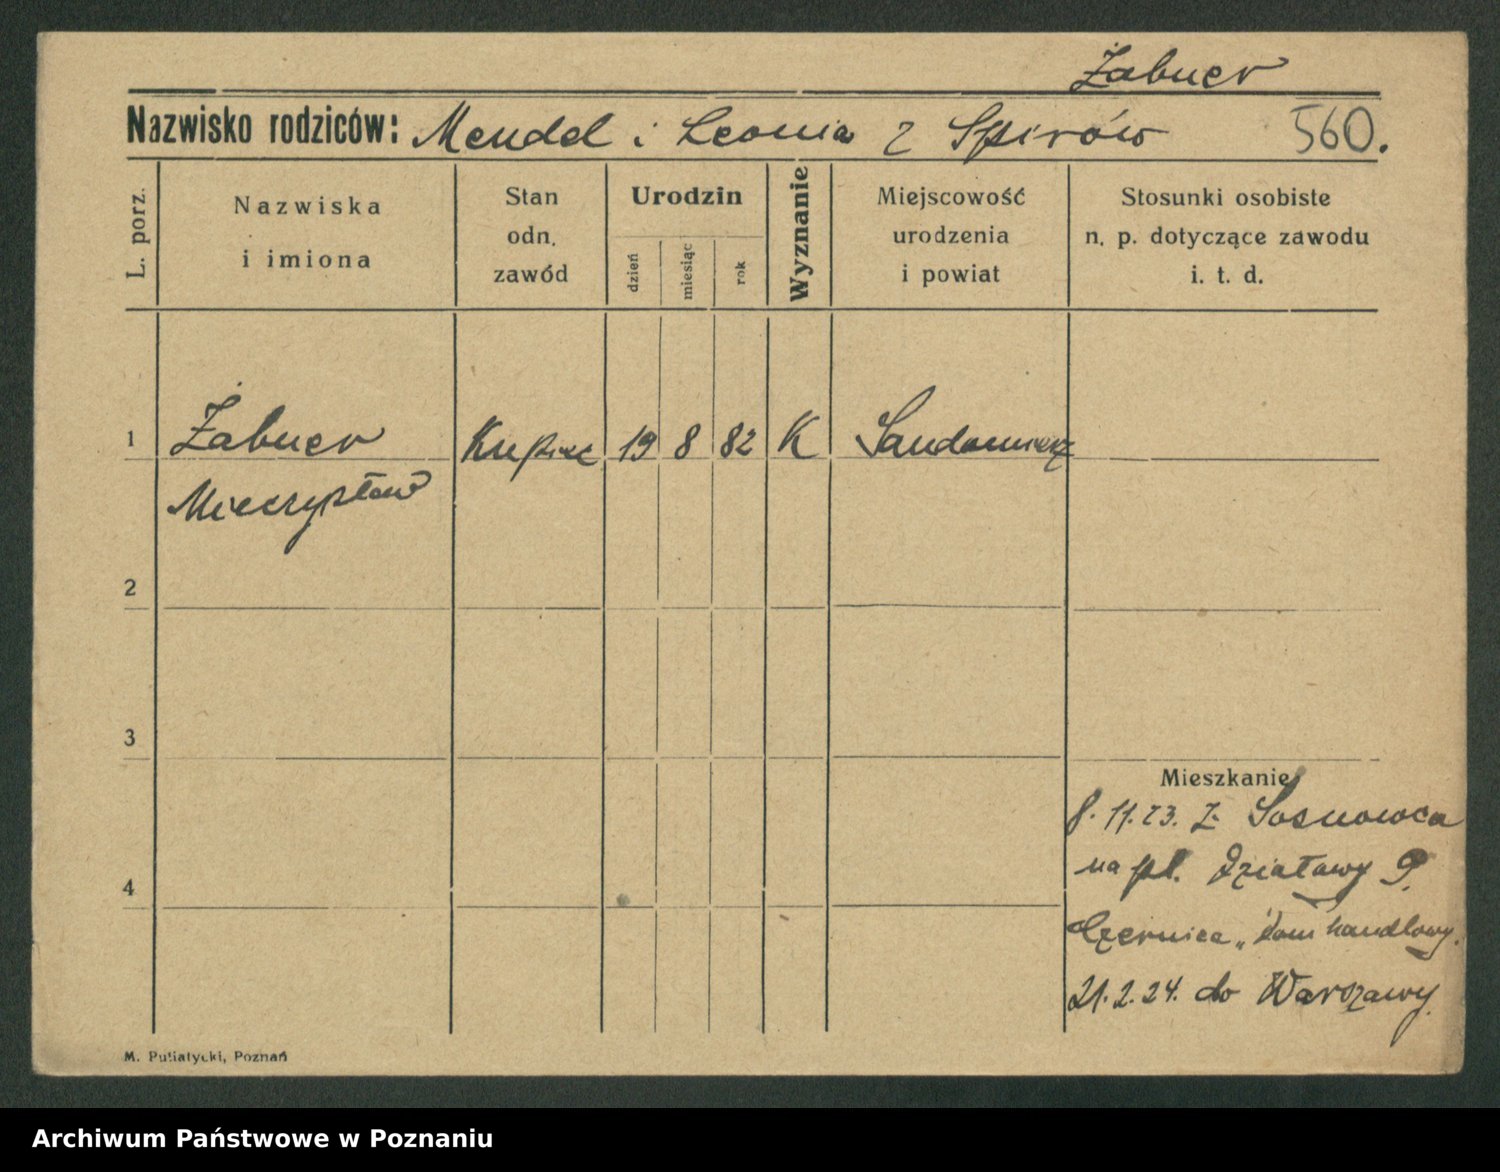 Żabner
Nazwisko rodziców: Mendel i Leonia z Spirów 560.
L. porz.
Nazwiska
i imiona
Stan
odn.
zawód
Urodzin
dzień
miesiąc
rok
Wyznanie
Miejscowość
urodzenia
i powiat
Stosunki osobiste
n. p. dotyczące zawodu
i. t. d.
1 Żabner Kupiec 19 8 82 K Sandomierz
Mieczysław
2
3
Mieszkanie
8. 11. 23. z Sosnowca
na pl. Działowy 9.
4
"Dom handlowy.
21. 2. 24. do Warszawy.
M. Putiatycki, Poznań
Archiwum Państwowe w Poznaniu